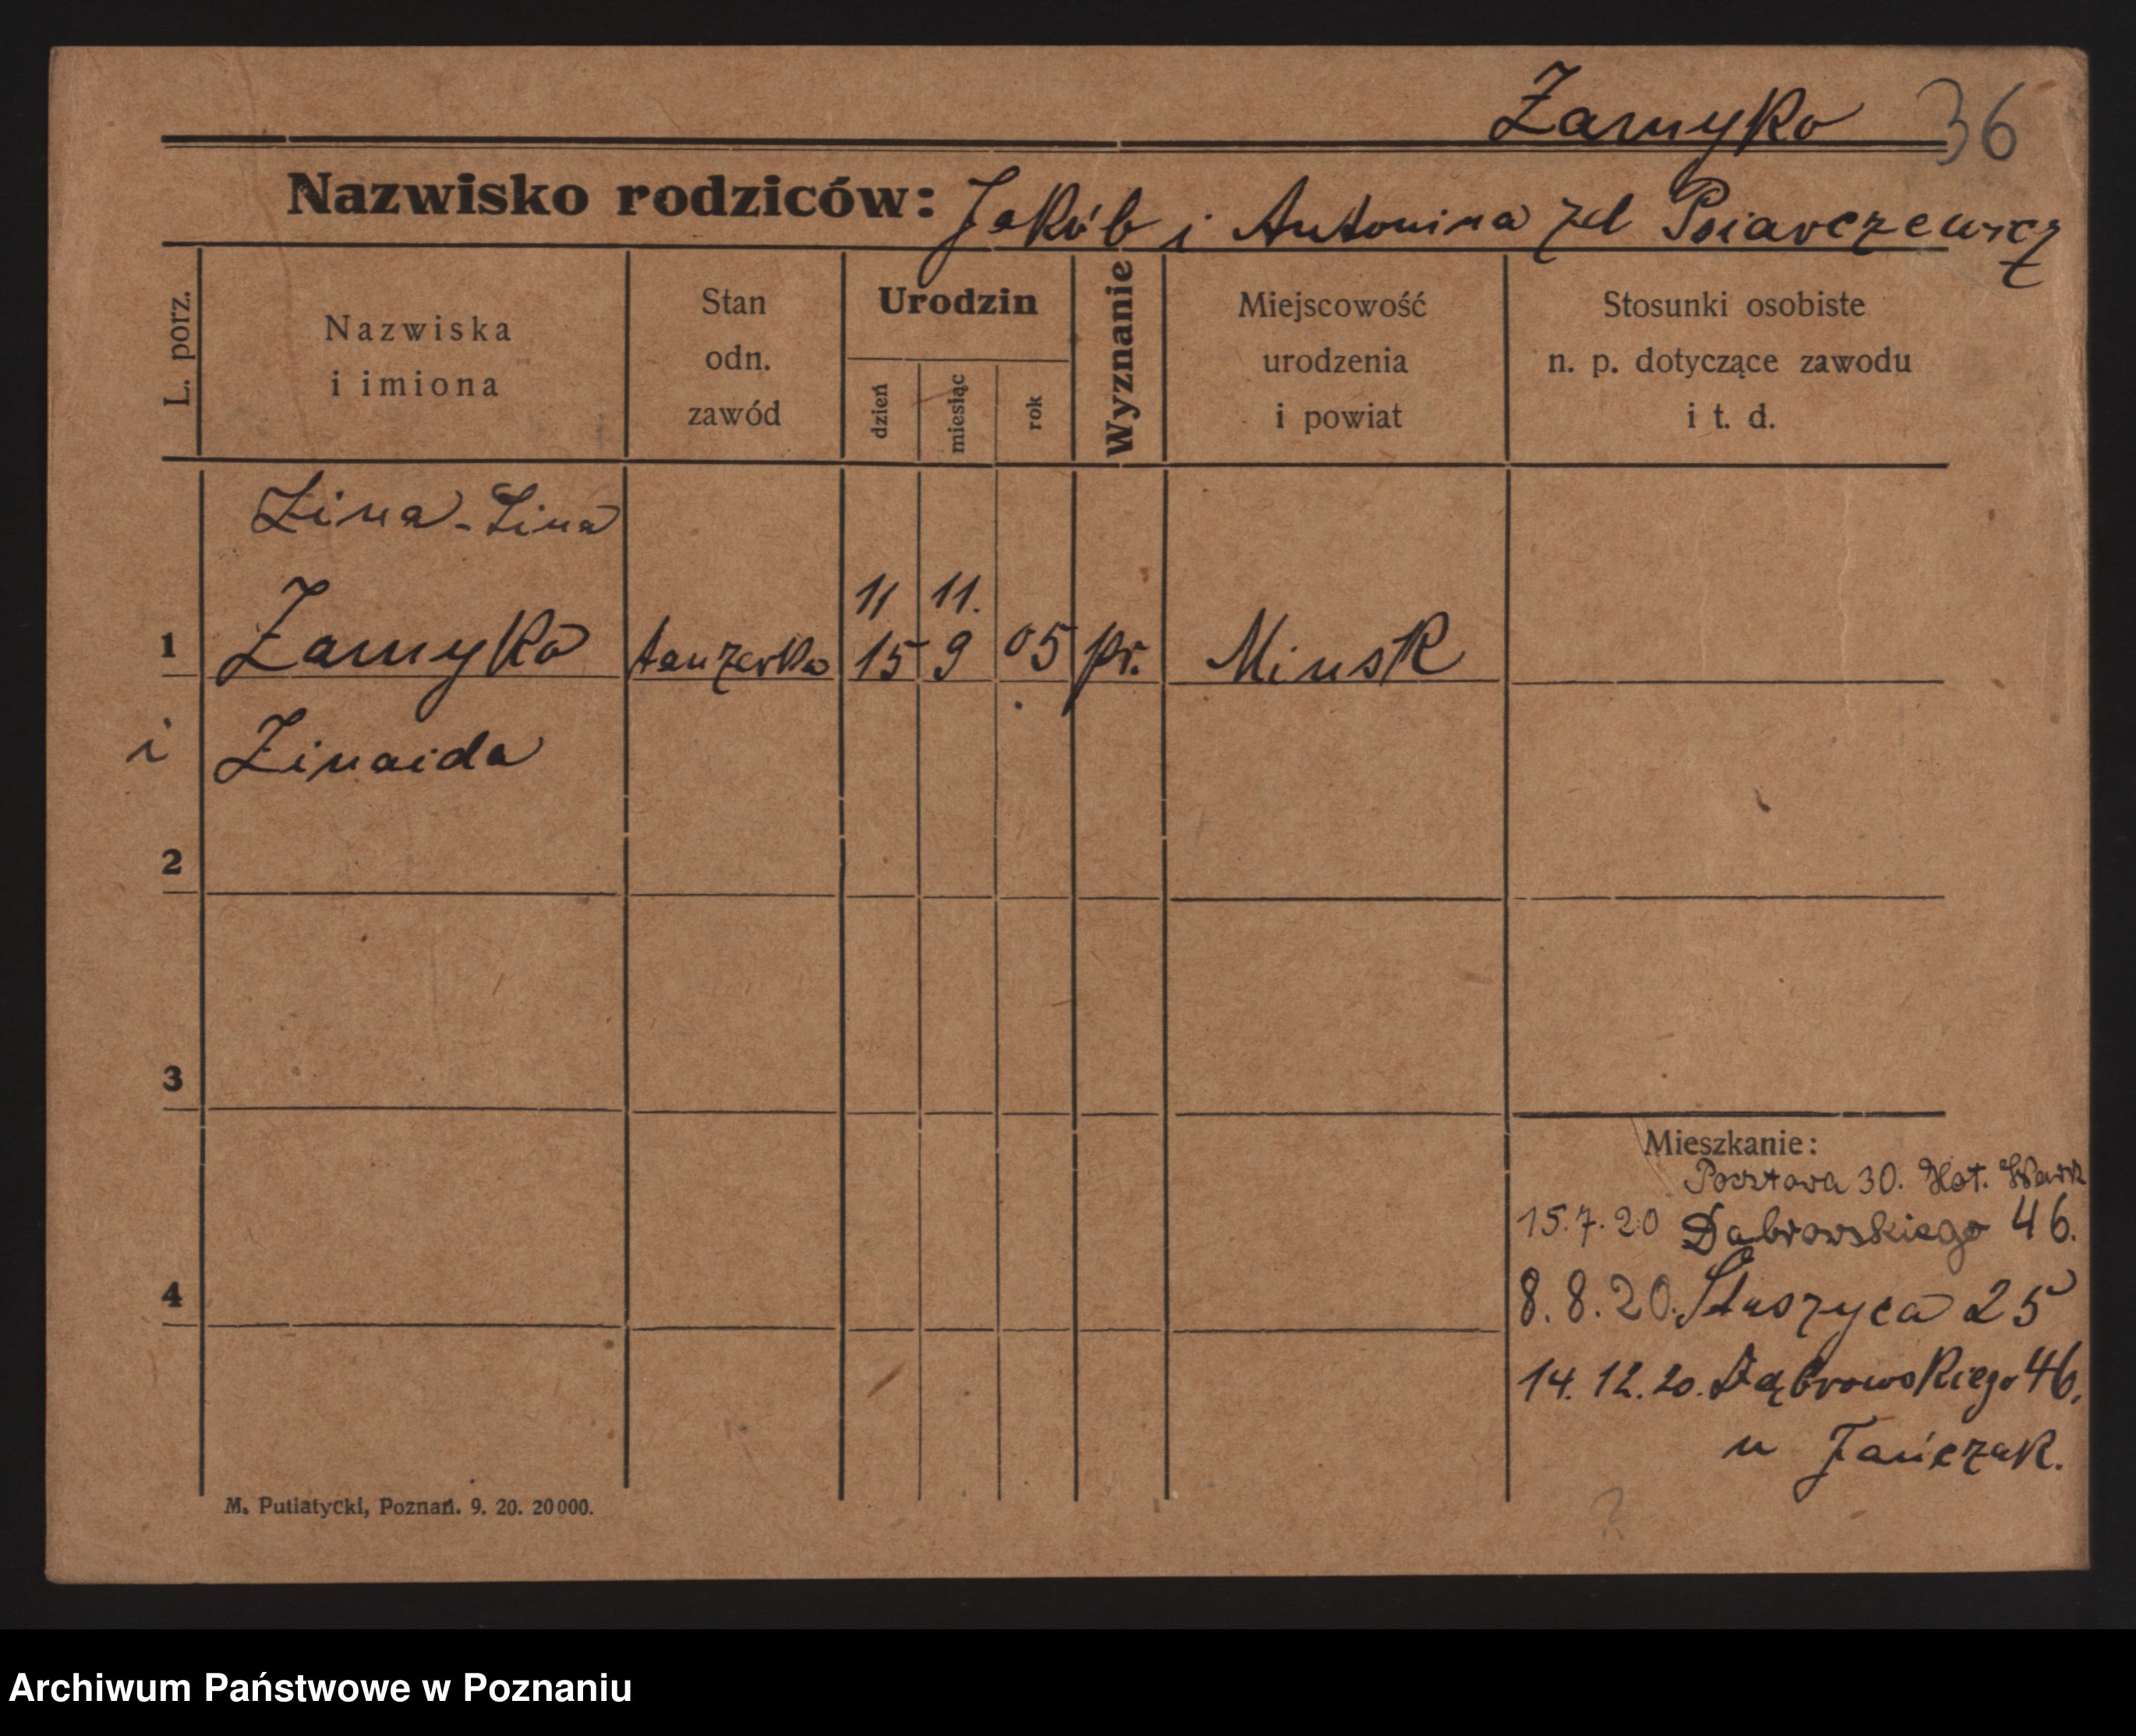 Zamyko 36
Nazwisko rodziców: Jakób i Antonina zd Psiarczewicz
L. porz.
Nazwiska
i imiona
Stan
odn.
zawód
Urodzin
dzień
miesiąc
rok
Wyznanie
Miejscowość
urodzenia
i powiat
Stosunki osobiste
n. p. dotyczące zawodu
i t. d.
Zina - Lina
11 11.
1 Zamyko tancerka 15 9 05 pr. Minsk
i Zinaida
2
3
4
Mieszkanie:
Pocztowa 30. Hot.
15.7.20 Dąbrowskiego 46.
8.8.20. Staszyca 25
14.12.20. Dąbrowskiego 46.
u Jańczak.
M. Putiatycki, Poznań. 9. 20. 20000.
Archiwum Państwowe w Poznaniu